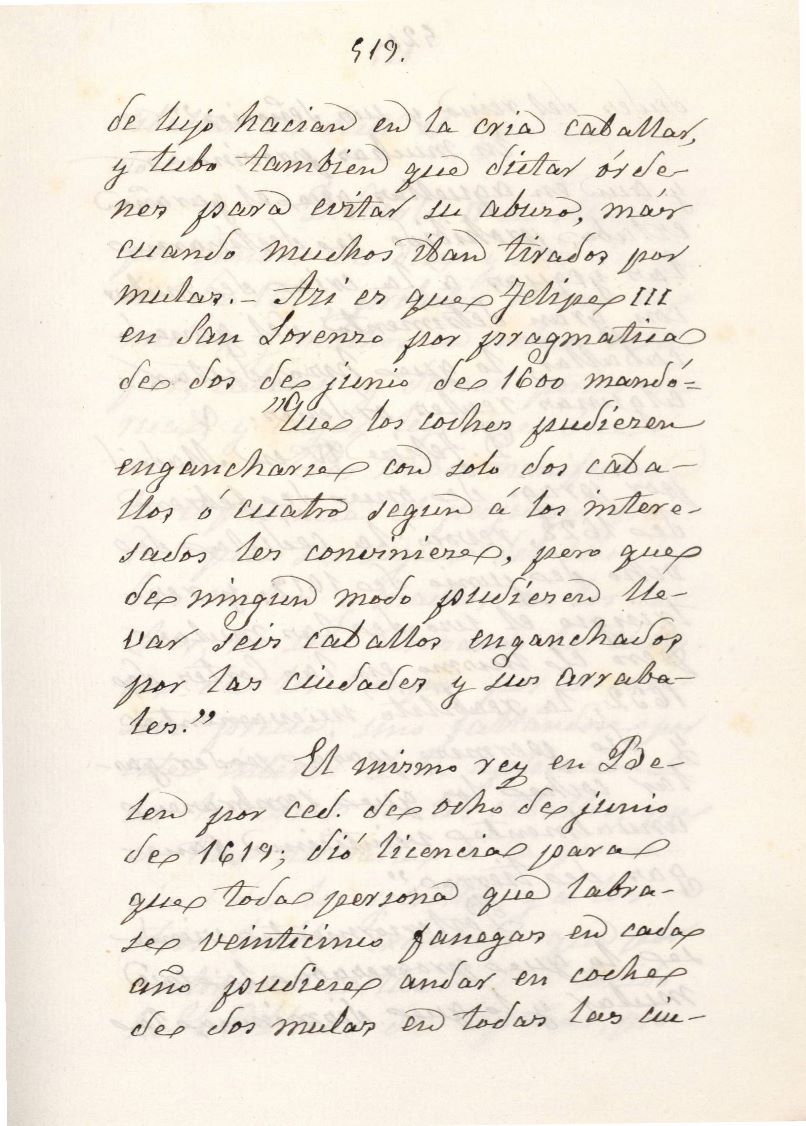 519.
de lujo hacian en la cria caballar,
y tubo tambien que dictar órde-
nes para evitar su abuso, más
cuando muchos iban tirados por
mulas.- Asi es que Felipe III
en San Lorenzo por pragmatica
de dos de junio de 1600 mandó=
"Que los coches pudiesen
engancharse con solo dos caba-
llos ó cuatro segun á los intere-
sados les conviniese, pero que
de ningun modo pudiesen lle-
var seis caballos enganchados
por las ciudades y sus arraba-
les."
El mismo rey en Be-
len por ced. de ocho de junio
de 1619; dió licencia para
que toda persona que labra-
se veinticinco fanegas en cada
año pudiese andar en coche
de dos mulas en todas las ciu-